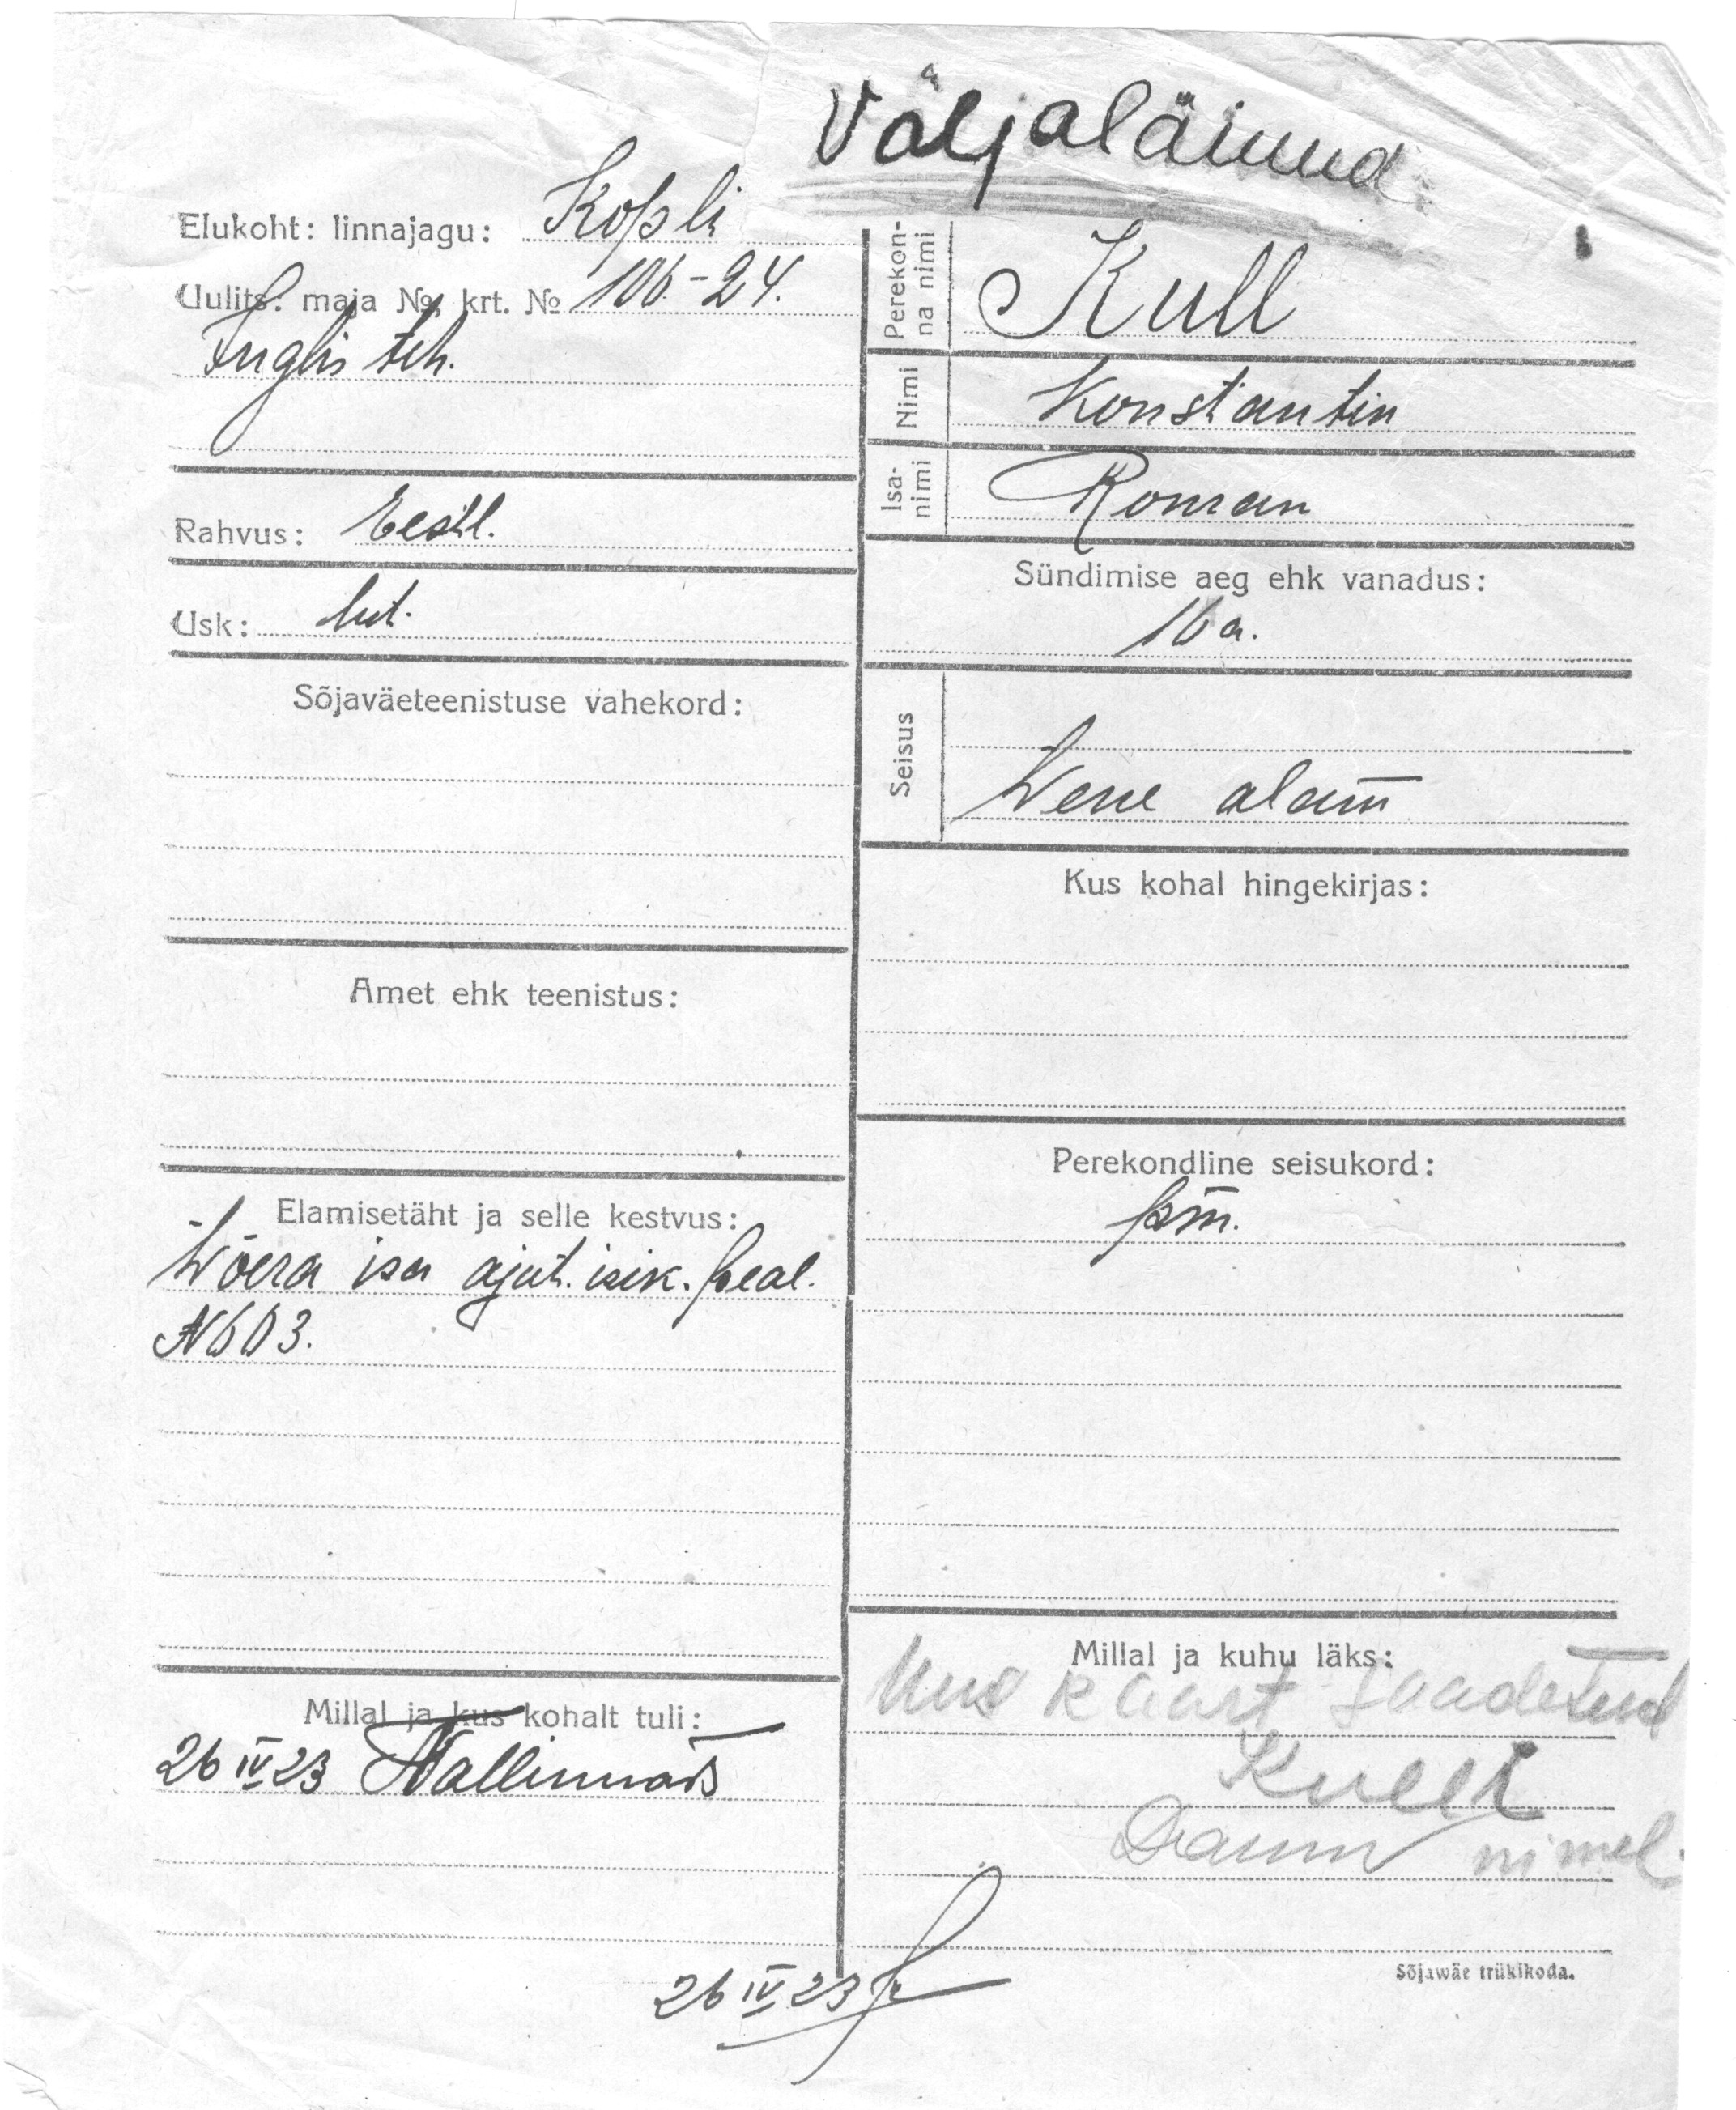 Väljaläinud
Elukoht: linnajagu: Kopli
Uulits: maja №, krt. № 106-24.
Inglis teh.
Rahvus: Eestl.
Usk: lut.
Sõjaväeteenistuse vahekord:
Amet ehk teenistus:
Elamisetäht ja selle kestvus:
Wõera isa ajut. isik. peal.
N603.
Millal ja kus kohalt tuli:
26 IV 23 Tallinnas
Perekon-
na nimi Kull
Nimi Konstantin
Isa-
nimi Roman
Sündimise aeg ehk vanadus:
16 a.
Seisus
Wene alam
Kus kohal hingekirjas:
Perekondline seisukord:
Millal ja kuhu läks:
Uus kaart saadetud
Kulli
nimel.
26 IV 23
Sõjawäe trükikoda.